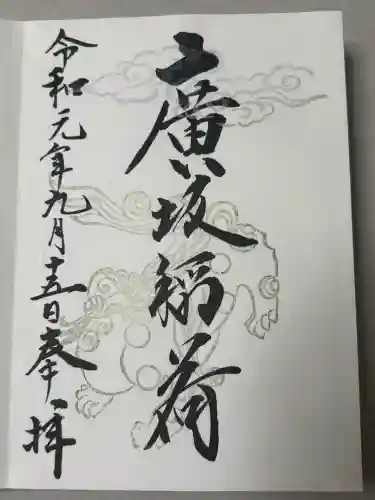 廣坂稲荷
令和元年九月十五日奉拝